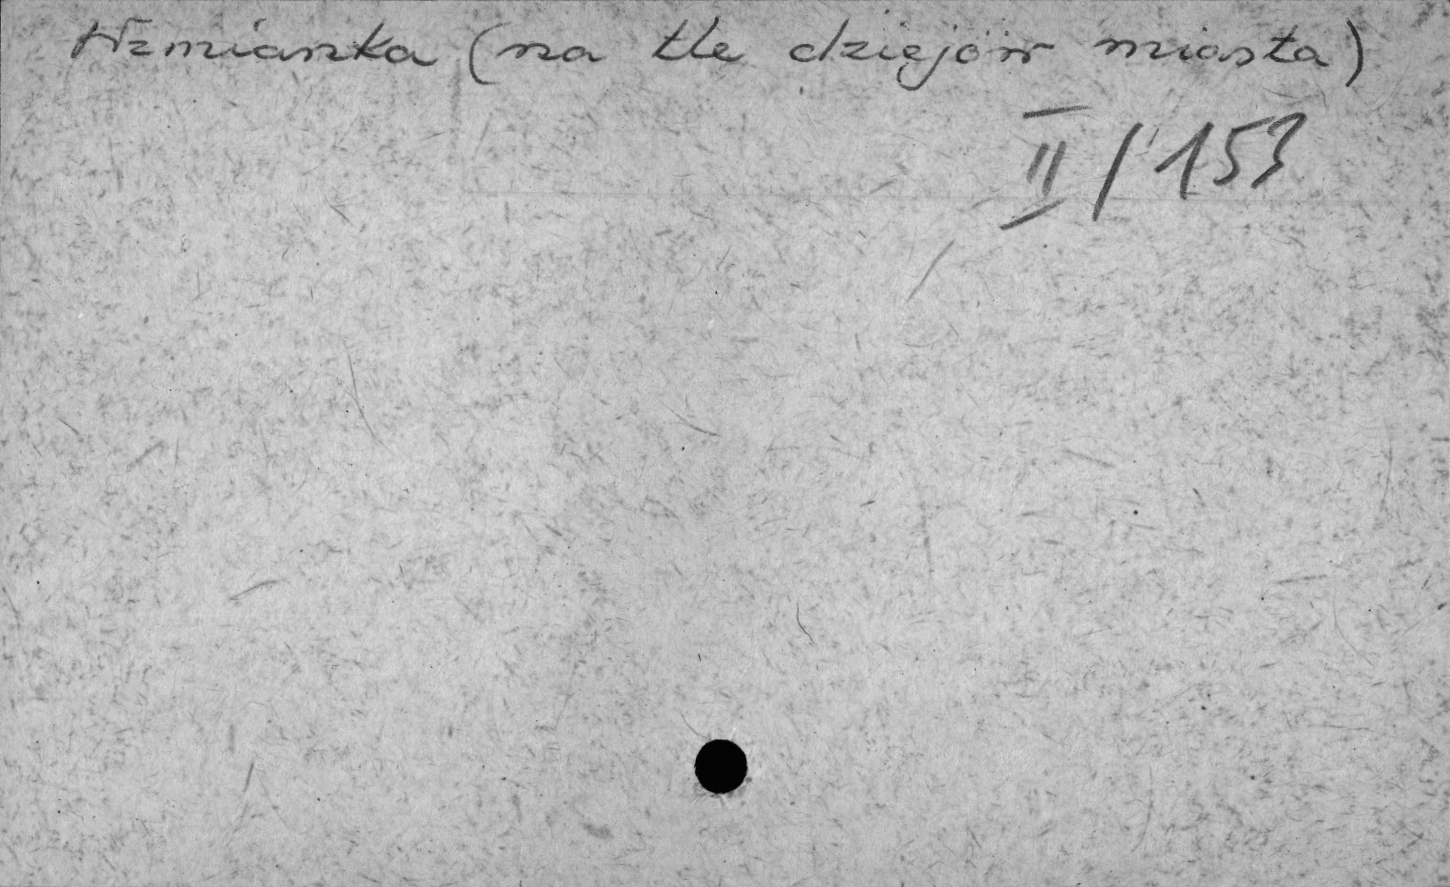 Wzmianka (na tle dziejów miasta)
II / 153